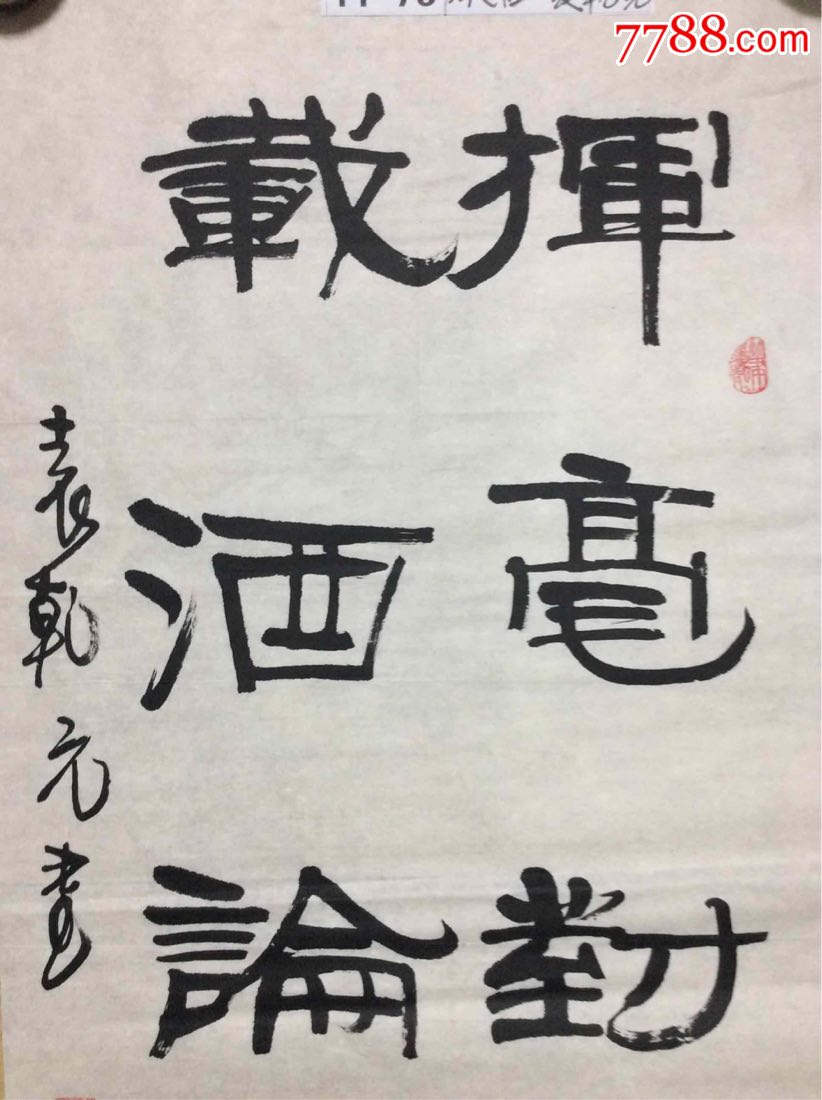 7788.com
揮毫對
載酒論
袁乾元書